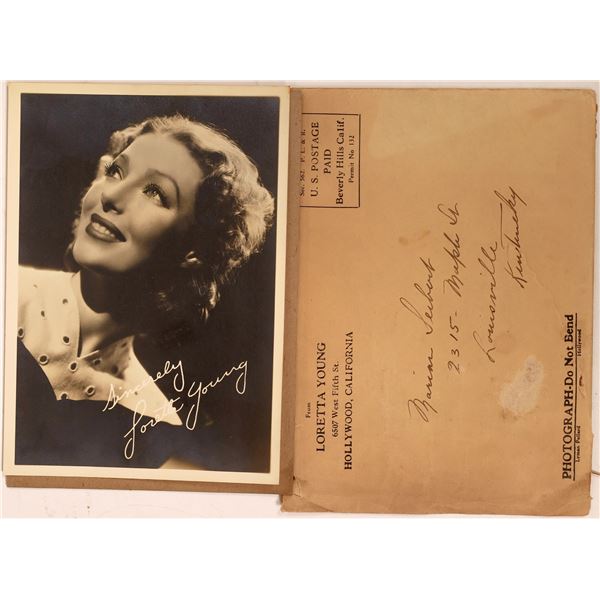 Sincerely
Loretta Young
Sec. 562, P. L. & R.
U. S. POSTAGE
PAID
Beverly Hills Calif.
Permit No 132
From
LORETTA YOUNG
6507 West Fifth St.
HOLLYWOOD, CALIFORNIA
Marian Seibert
2315- Maple St
Louisville
Kentucky
PHOTOGRAPH-Do Not Bend
Hollywood